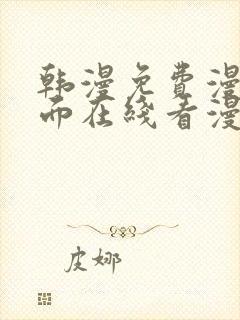 韩漫免费漫
而在线看漫
皮娜